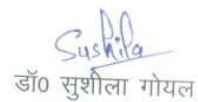 Sushila
डॉ0 सुशीला गोयल